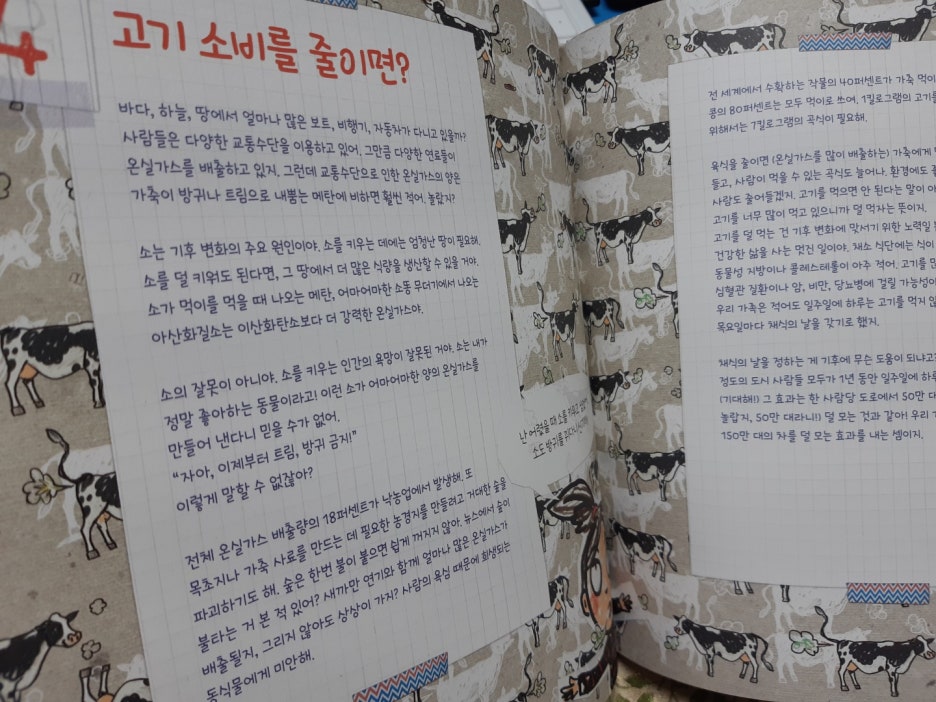 4
고기 소비를 줄이면?
바다, 하늘, 땅에서 얼마나 많은 보트, 비행기, 자동차가 다니고 있을까?
사람들은 다양한 교통수단을 이용하고 있어. 그만큼 다양한 연료들이
온실가스를 배출하고 있지. 그런데 교통수단으로 인한 온실가스의 양은
가축이 방귀나 트림으로 내뿜는 메탄에 비하면 훨씬 적어. 놀랍지?
소는 기후 변화의 주요 원인이야. 소를 키우는 데에는 엄청난 땅이 필요해.
소를 덜 키워도 된다면, 그 땅에서 더 많은 식량을 생산할 수 있을 거야.
소가 먹이를 먹을 때 나오는 메탄, 어마어마한 소똥 무더기에서 나오는
아산화질소는 이산화탄소보다 더 강력한 온실가스야.
소의 잘못이 아니야. 소를 키우는 인간의 욕망이 잘못된 거야. 소는 내가
정말 좋아하는 동물이라고! 이런 소가 어마어마한 양의 온실가스를
만들어 낸다니 믿을 수가 없어.
“자아, 이제부터 트림, 방귀 금지!”
이렇게 말할 수 없잖아?
전체 온실가스 배출량의 18퍼센트가 낙농업에서 발생해. 또
목초지나 가축 사료를 만드는 데 필요한 농경지를 만들려고 거대한 숲을
파괴하기도 해. 숲은 한번 불이 붙으면 쉽게 꺼지지 않아. 뉴스에서 숲이
불타는 거 본 적 있어? 새까만 연기와 함께 얼마나 많은 온실가스가
배출될지, 그리지 않아도 상상이 가지? 사람의 욕심 때문에 희생되는
동식물에게 미안해.
난 어렸을 때 소를 키우고
소도 방귀를
전 세계에서 수확하는 작물의 40퍼센트가 가축 먹이
콩의 80퍼센트는 모두 먹이로 쓰여. 1킬로그램의 고기를
위해서는 7킬로그램의 곡식이 필요해.
육식을 줄이면 (온실가스를 많이 배출하는) 가축에게
들고, 사람이 먹을 수 있는 곡식도 늘어나. 환경에도
사람도 줄어들겠지. 고기를 먹으면 안 된다는 말이
고기를 너무 많이 먹고 있으니까 덜 먹자는 뜻이지.
고기를 덜 먹는 건 기후 변화에 맞서기 위한 노력일
건강한 삶을 사는 멋진 일이야. 채소 식단에는 식이
동물성 지방이나 콜레스테롤이 아주 적어. 고기를
심혈관 질환이나 암, 비만, 당뇨병에 걸릴 가능성이
우리 가족은 적어도 일주일에 하루는 고기를 먹지
목요일마다 채식의 날을 갖기로 했지.
채식의 날을 정하는 게 기후에 무슨 도움이 되냐고
정도의 도시 사람들 모두가 1년 동안 일주일에 하루
(기대해!) 그 효과는 한 사람당 도로에서 50만 대
놀랍지, 50만 대라니!) 덜 모는 것과 같아! 우리
150만 대의 차를 덜 모는 효과를 내는 셈이지.